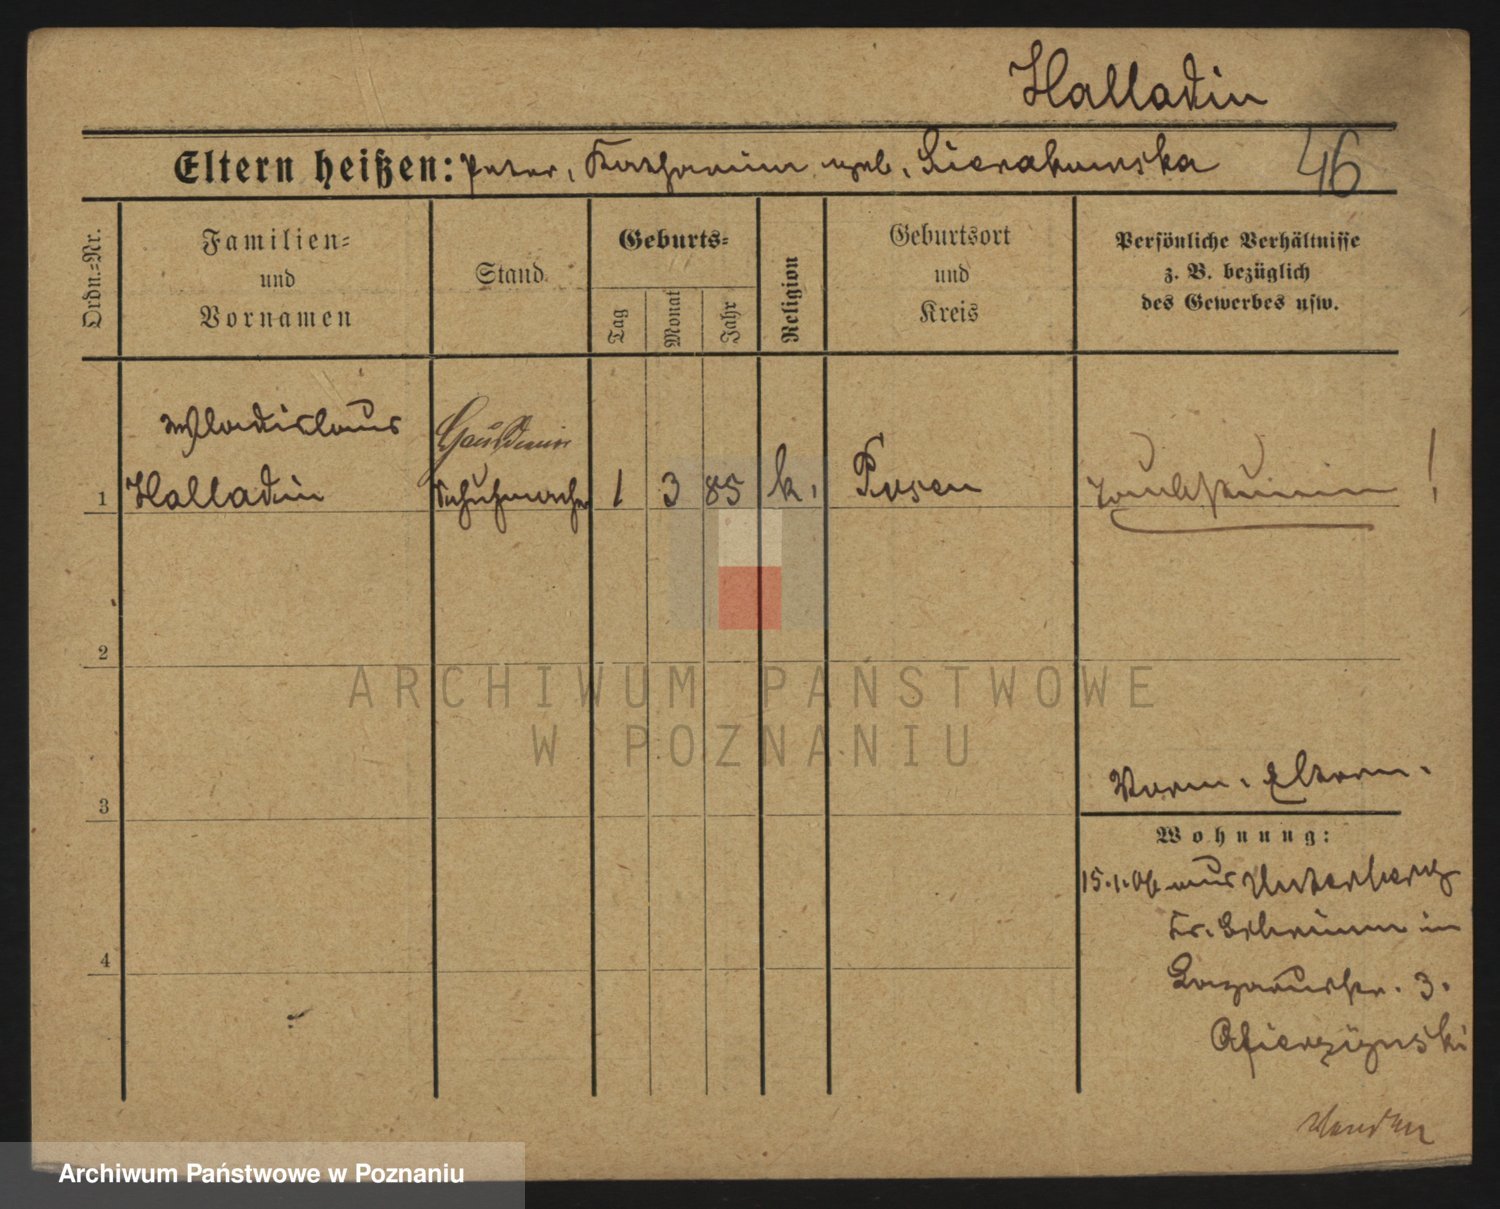 Halladin
Eltern heißen: Peter, Katharina geb. Sierakowska
46
Ordn.-Nr.
Familien-
und
Vornamen
Stand
Geburts-
Tag
Monat
Jahr
Religion
Geburtsort
und
Kreis
Persönliche Verhältnisse
z. B. bezüglich
des Gewerbes usw.
Wladislaus
1 Halladin Schuhmacher 1 3 85 k. Posen taubstumm !
2
ARCHIWUM PAŃSTWOWE
W POZNANIU
3
Vorm. Eltern.
Wohnung:
15.1.06 aus Unterberg
Kr. Schrimm in
Lazarusstr. 3.
4
Wenden
Archiwum Państwowe w Poznaniu